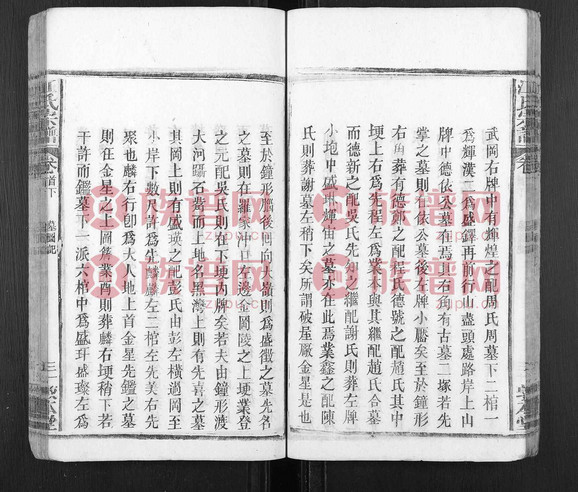 武岡右牌中有輝煌之配周氏周墓下二棺一
爲輝漢二爲盛鐸再前行山盡頭處路岸上山
牌中德依公墓在焉下右到有古墓二塚若先
掌之墓則在依公墓後左牌小壋矣至於鐘形
右角葬有德鄭之配程氏德號之配趙氏其中
埂上右爲先程左爲業本與其繼配趙氏合墓
而德新之配吳氏先如之繼配謝氏則葬左片
小坳中盛琳輝宙之墓亦在此焉業鑫之配陳
氏則葬謝墓左稍下矣所謂破星廠金星是也
江氏宗譜
卷首下
墓圖記
三
至於鐘形壋後倒向大嶺則爲盛徵之墓先名
之墓則在羅業冲口左邊金岡陵之上埂業登
之元配吳氏則在下埂內牌矣若夫由鐘形渡
大河躡石嘴而上地名黑灣上則有先喜之墓
其岡上則有盛瑛之配彭氏由彭左橫過岡至
水岸下數尺許爲先麟麟左二棺左先美右先
聚也麟右行卽爲大人地上首金星先鑑之墓
則在金星之上圓界業酉則葬麟右埂稍下若
干許而鑑墓下一派六棺中爲盛玕盛璨左爲